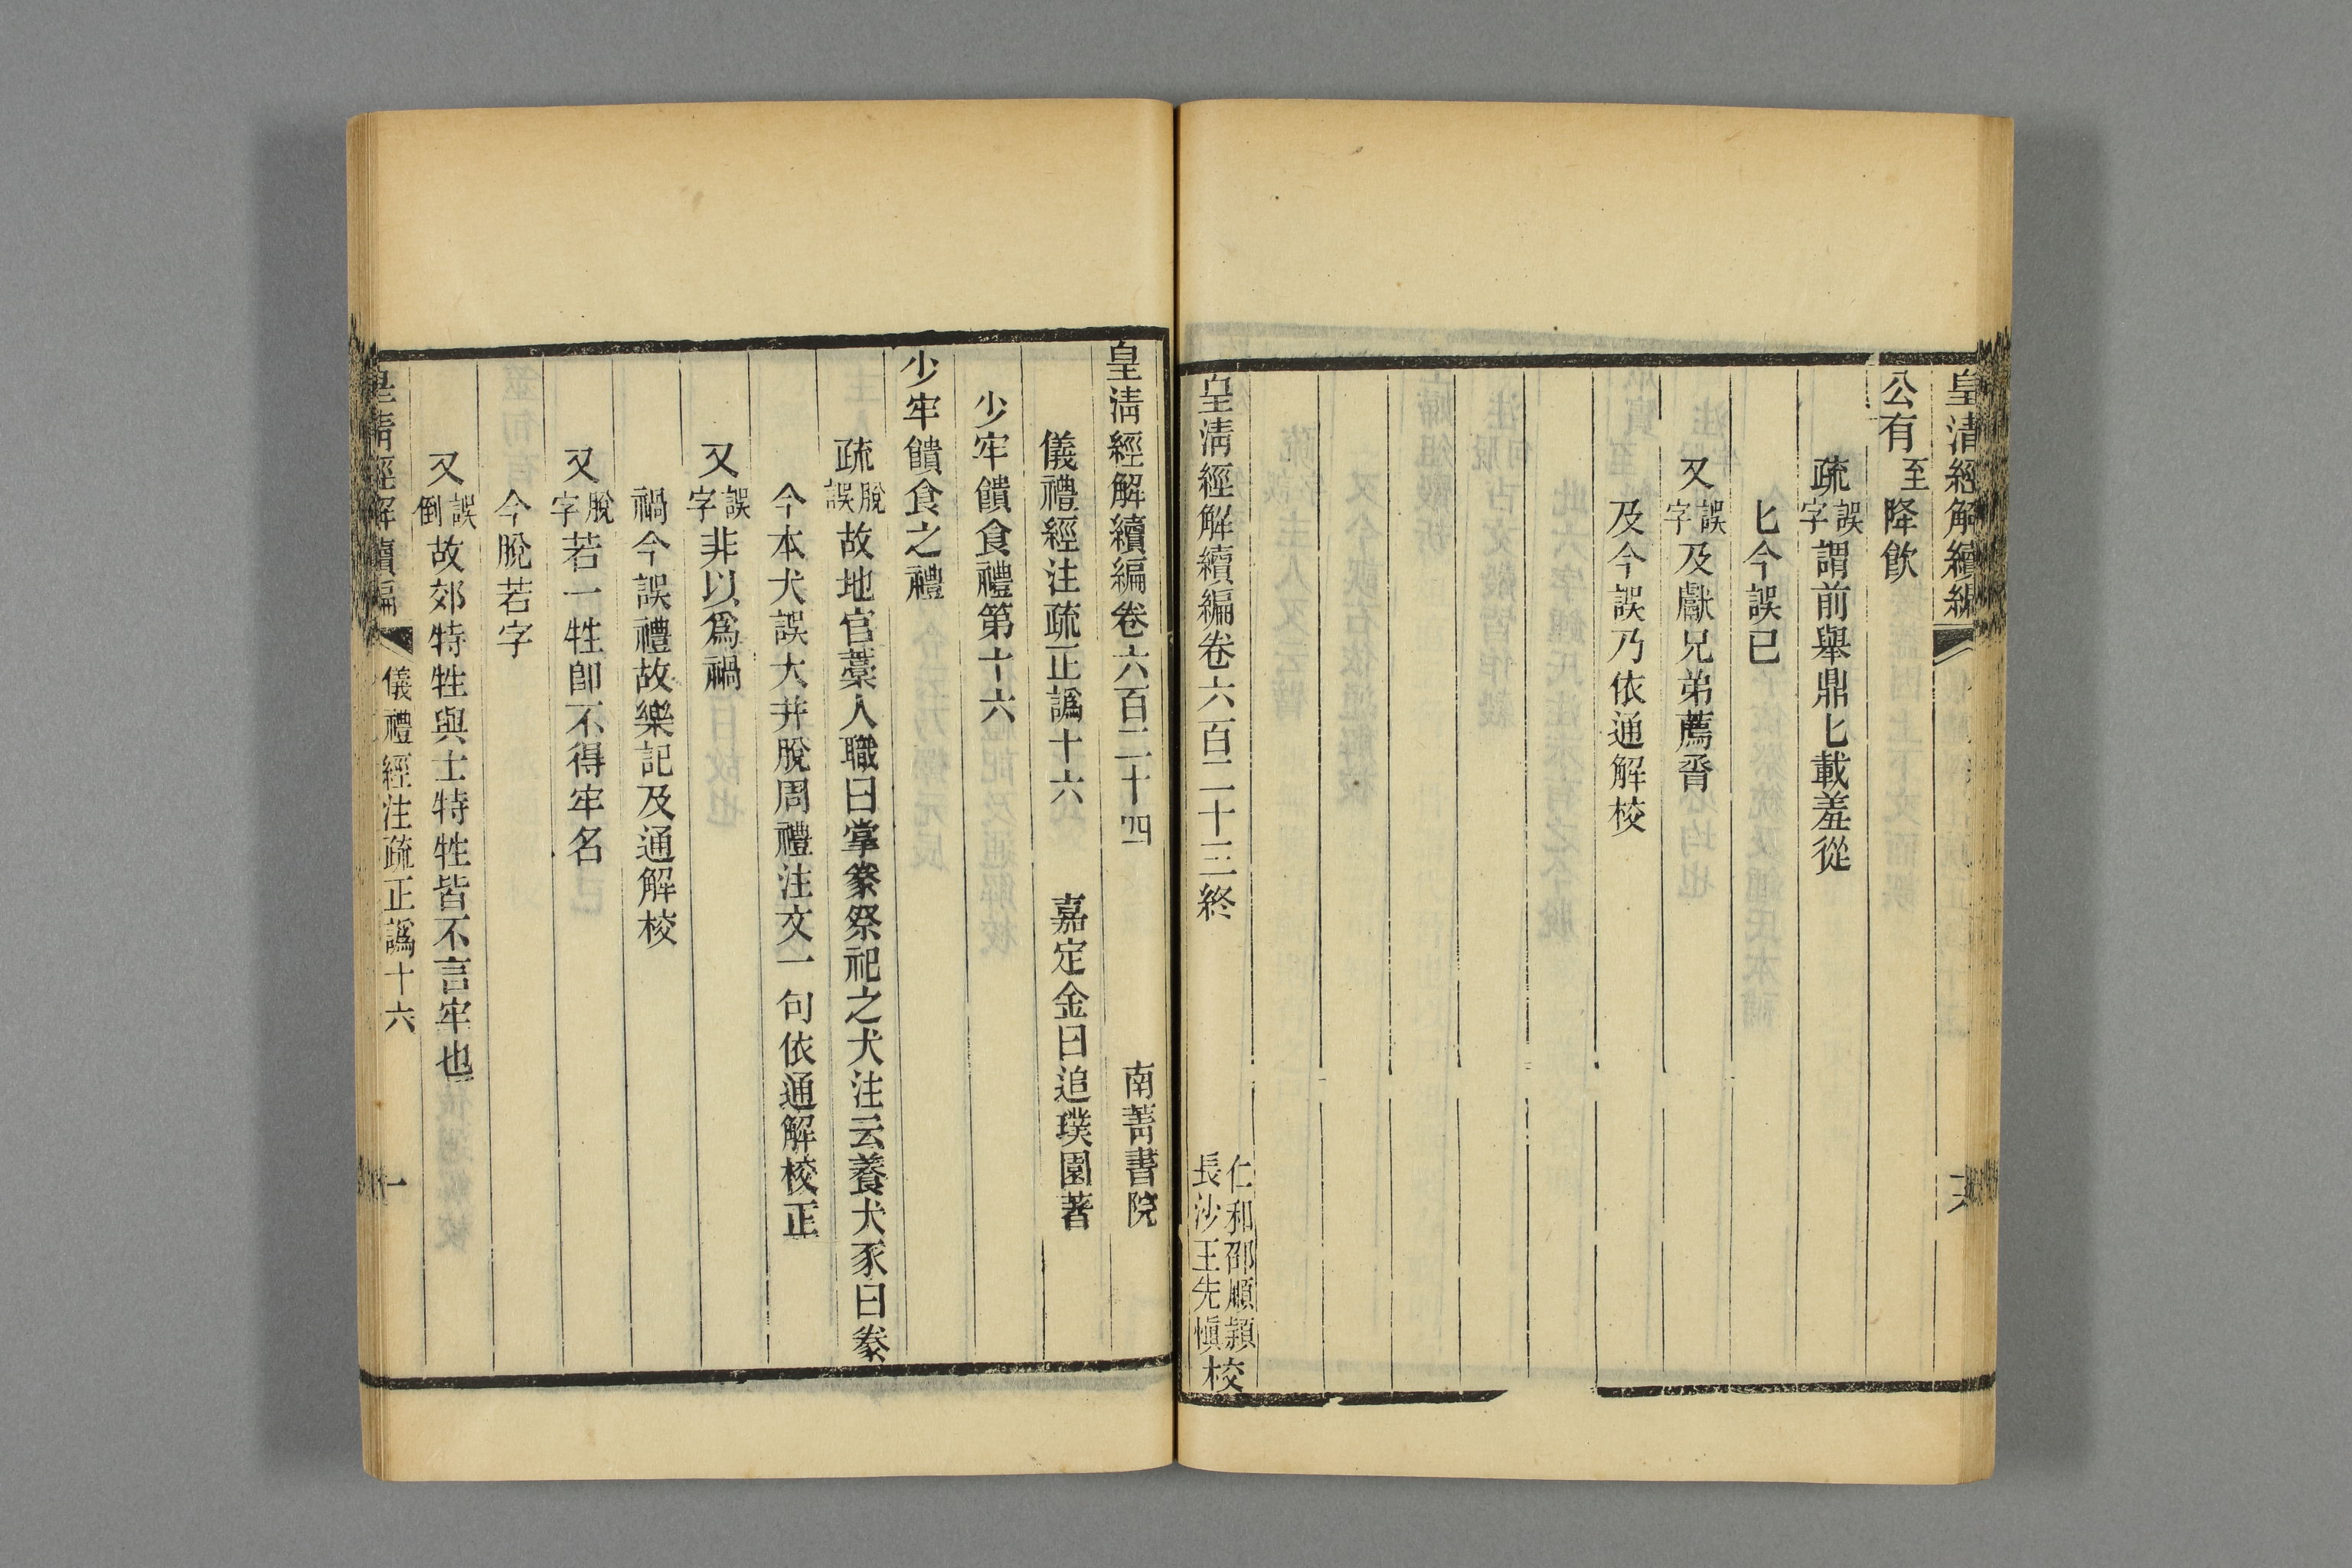 皇清經解續編
公有至降飲
疏誤字謂前舉鼎匕載羞從
匕今誤已
又誤字及獻兄弟薦脀
及今誤乃依通解校
皇清經解續編卷六百二十三終
仁和邵順潁
長沙王先愼
校
皇清經解續編卷六百二十四
南菁書院
儀禮經注疏正譌十六
嘉定金曰追璞園著
少牢饋食禮第十六
少牢饋食之禮
疏脫誤故地官藁人職曰掌豢祭祀之犬注云養犬豕曰豢
今本犬誤大幷脫周禮注文一句依通解校正
又誤字非以爲禍
禍今誤禮故樂記及通解校
又脫字若一牲卽不得牢名
今脫若字
又誤倒故郊特牲與士特牲皆不言牢也
皇清經解續編
儀禮經注疏正譌十六
一